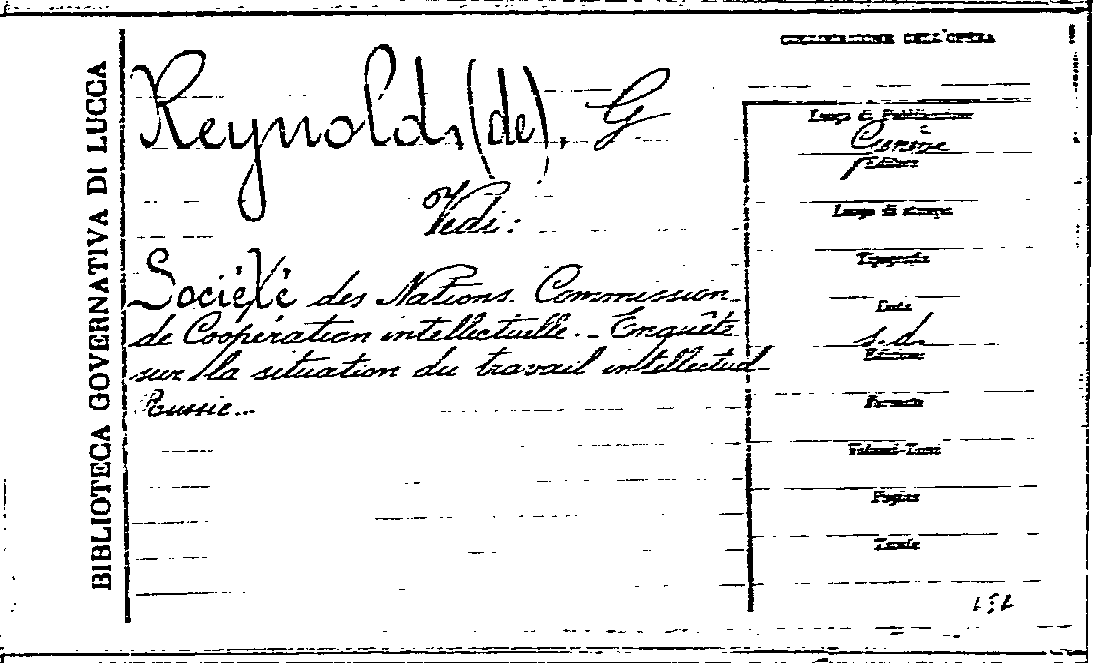 BIBLIOTECA GOVERNATIVA DI LUCCA
Reynold, (de). G
Vedi:
Société des Nations. Commission
de Coopération intellectuelle. - Enquête
sur la situation du travail intellectuel
Russie...
DELL'OPERA
Luogo di Pubblicazione
Editore
Luogo di stampa
Tipografia
Data
s.d.
Edizione
Formato
Volumi-Tomi
Pagine
Tavole